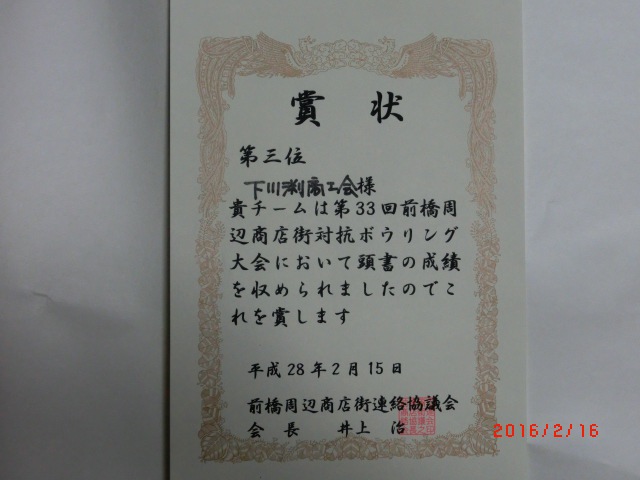 賞状
第三位
下川渕商工会様
貴チームは第33回前橋周
辺商店街対抗ボウリング
大会において頭書の成績
を収められましたのでこ
れを賞します
平成28年2月15日
前橋周辺商店街連絡協議会
会長 井上 治
2016/2/16